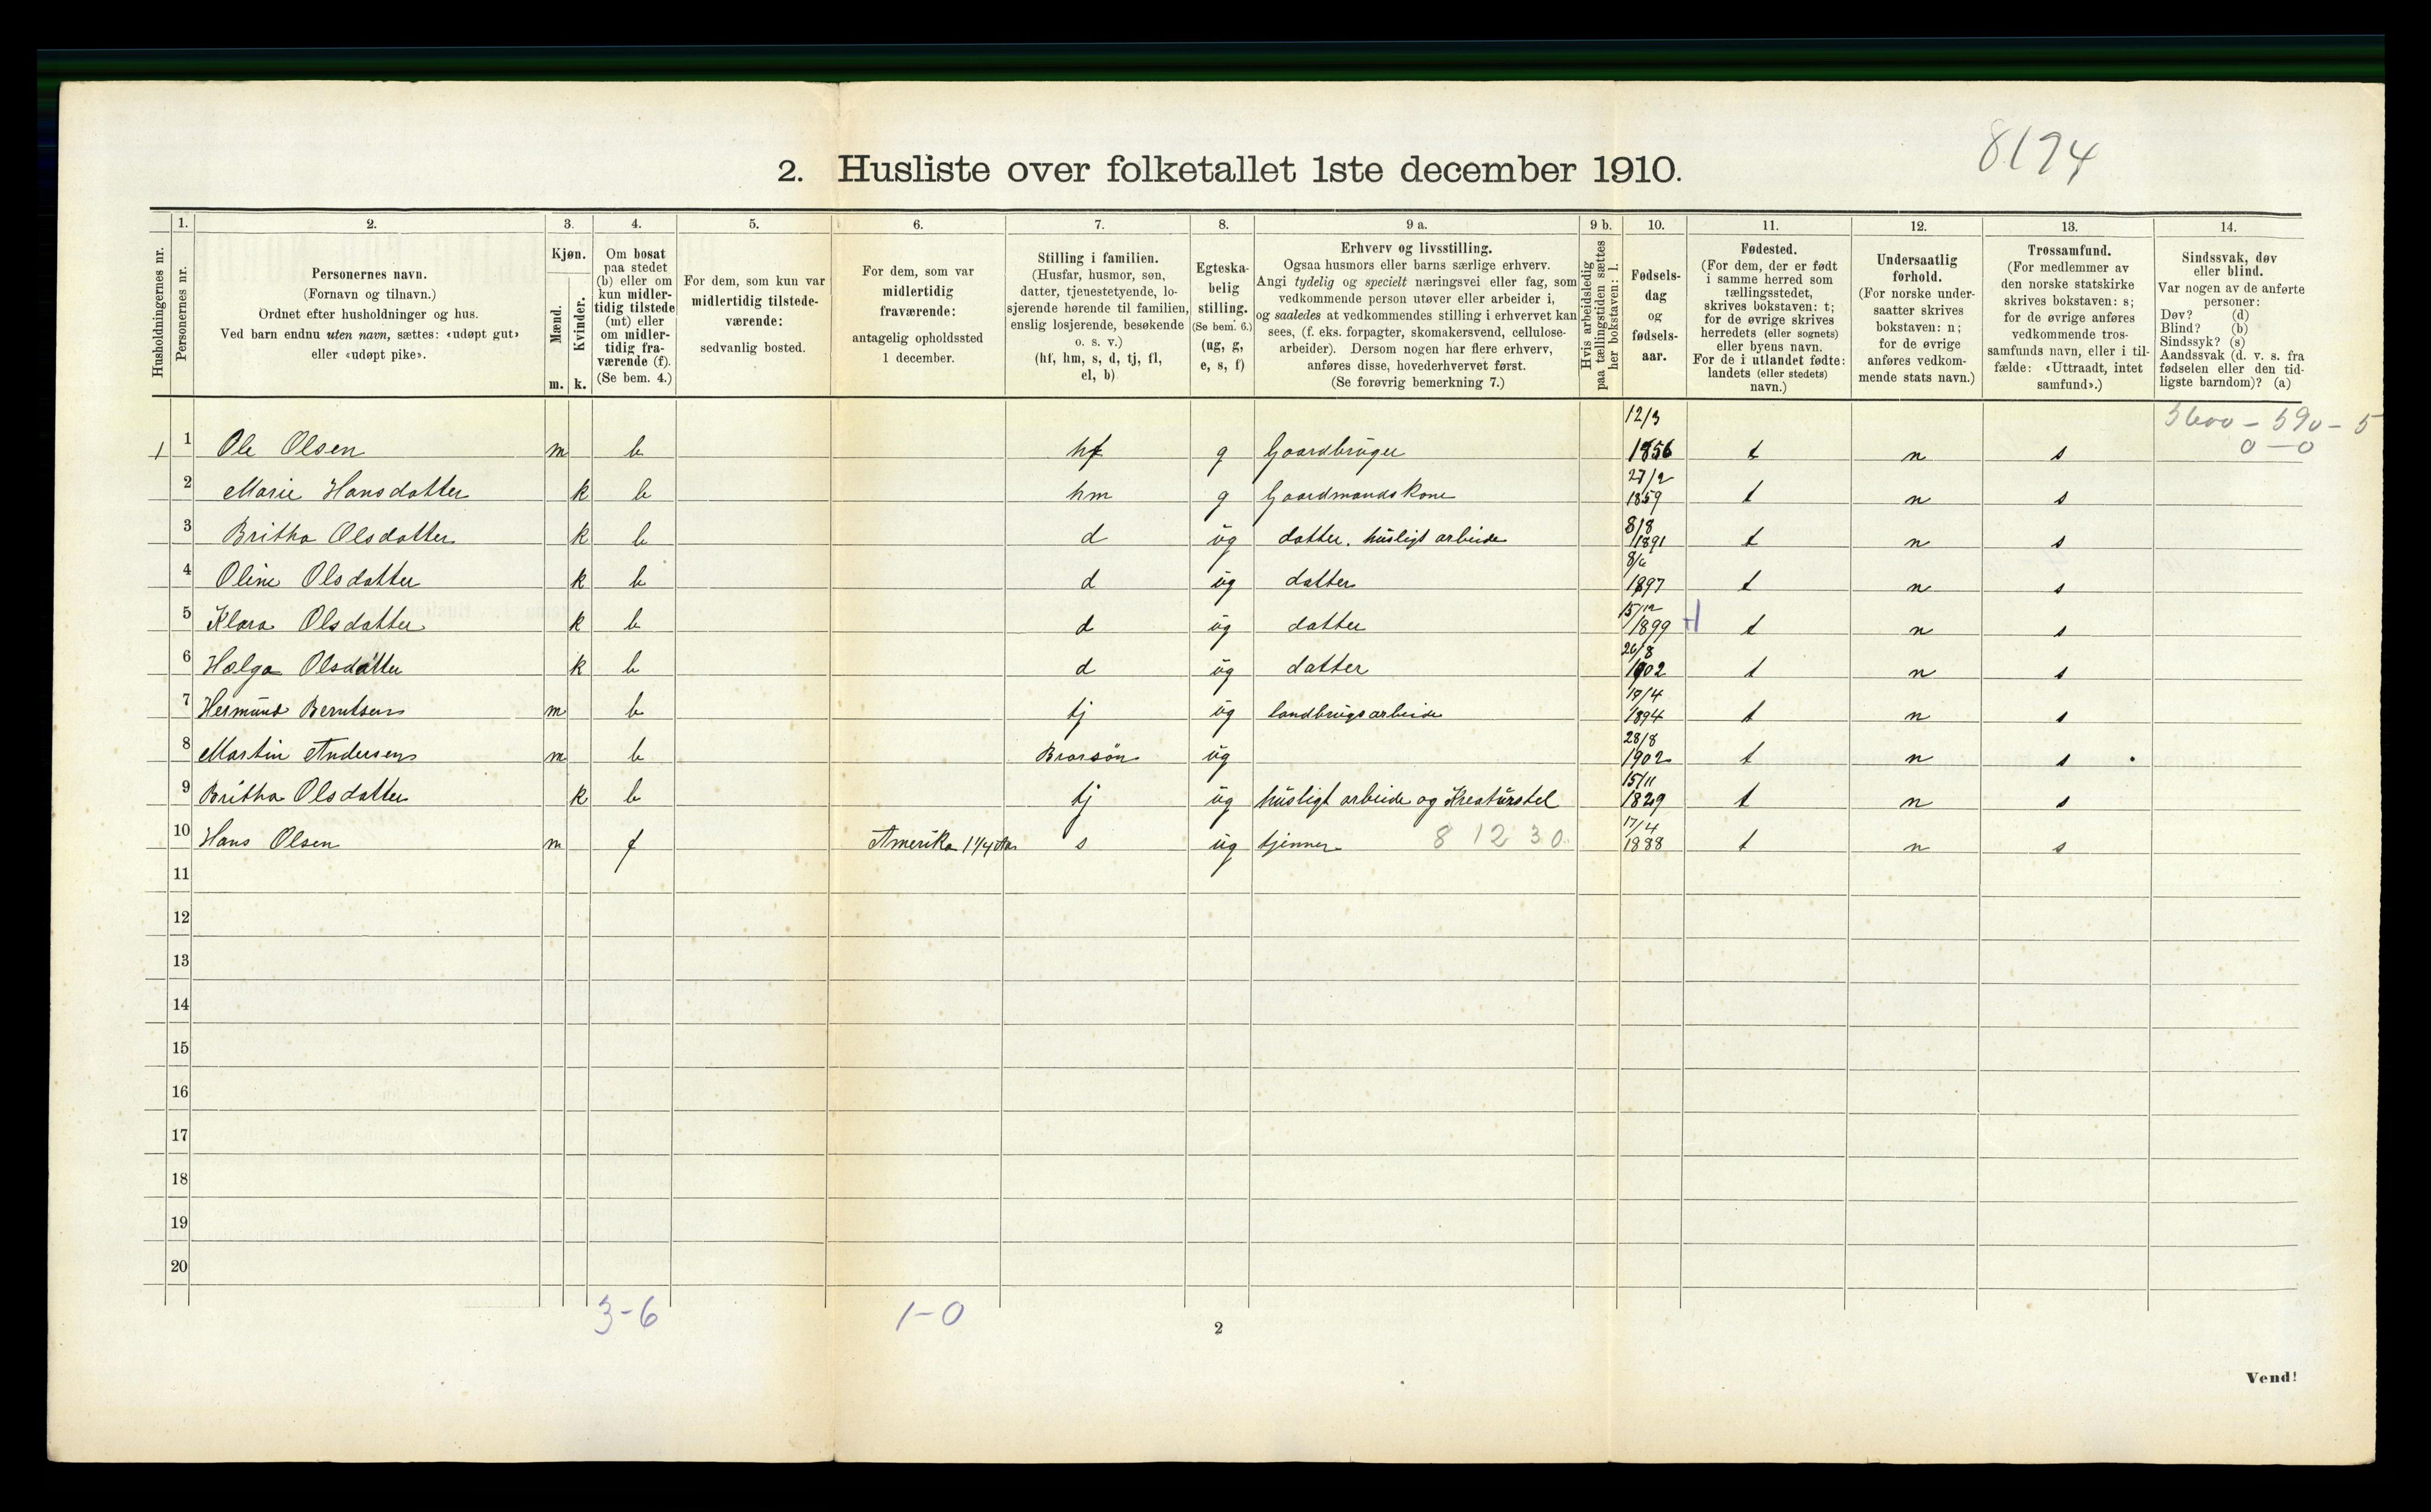 8174
2. Husliste over folketallet 1ste december 1910.
Husholdningernes nr.
1.
Personernes nr.
2.
Personernes navn.
(Fornavn og tilnavn.)
Ordnet efter husholdninger og hus.
Ved barn endnu uten navn, sættes: «udøpt gut»
eller «udøpt pike».
3.
Kjøn.
Mænd.
Kvinder.
m. k.
4.
Om bosat
paa stedet
(b) eller om
kun midler-
tidig tilstede
(mt) eller
om midler-
tidig fra-
værende (f).
(Se bem. 4.)
5.
For dem, som kun var
midlertidig tilstede-
værende:
sedvanlig bosted.
6.
For dem, som var
midlertidig
fraværende:
antagelig opholdssted
1 december.
7.
Stilling i familien.
(Husfar, husmor, søn,
datter, tjenestetyende, lo-
sjerende hørende til familien,
enslig losjerende, besøkende
o. s. v.)
(hf, hm, s, d, tj, fl,
el, b)
8.
Egteska-
belig
stilling.
(Se bem. 6.)
(ug, g,
e, s, f)
9 a.
Erhverv og livsstilling.
Ogsaa husmors eller barns særlige erhverv.
Angi tydelig og specielt næringsvei eller fag, som
vedkommende person utøver eller arbeider i,
og saaledes at vedkommendes stilling i erhvervet kan
sees, (f. eks. forpagter, skomakersvend, cellulose-
arbeider). Dersom nogen har flere erhverv,
anføres disse, hovederhvervet først.
(Se forøvrig bemerkning 7.)
9 b.
Hvis arbeidsledig
paa tællingstiden sættes
her bokstaven: l.
10.
Fødsels-
dag
og
fødsels-
aar.
11.
Fødested.
(For dem, der er født
i samme herred som
tællingsstedet,
skrives bokstaven: t;
for de øvrige skrives
herredets (eller sognets)
eller byens navn.
For de i utlandet fødte:
landets (eller stedets)
navn.)
12.
Undersaatlig
forhold.
(For norske under-
saatter skrives
bokstaven: n;
for de øvrige
anføres vedkom-
mende stats navn.)
13.
Trossamfund.
(For medlemmer av
den norske statskirke
skrives bokstaven: s;
for de øvrige anføres
vedkommende tros-
samfunds navn, eller i til-
fælde: «Uttraadt, intet
samfund».)
14.
Sindssvak, døv
eller blind.
Var nogen av de anførte
personer:
Døv? (d)
Blind? (b)
Sindssyk? (s)
Aandssvak (d. v. s. fra
fødselen eller den tid-
ligste barndom)? (a)
5600 - 590 - 5
0 - 0
1 1 Ole Olsen m b hf g Gaardbruger 12/3 1856 t n s
2 Marie Hansdatter k b hm g Gaardmandskone 27/2 1859 t n s
3 Britha Olsdatter k b d ug datter. husligt arbeide 8/8 1891 t n s
4 Oline Olsdatter k b d ug datter 8/6 1897 t n s
5 Klara Olsdatter k b d ug datter 15/12 1899 t n s
6 Hælga Olsdatter k b d ug datter 26/8 1902 t n s
7 Hermund Berntsen m b tj ug landbrugsarbeide 19/4 1894 t n s
8 Martin Andersen m b Brorsøn ug 28/8 1902 t n s
9 Britha Olsdatter k b tj ug husligt arbeide og Kreaturstel 15/11 1829 t n s
10 Hans Olsen m f Amerika 1 1/4 Aar s ug tjenner 8 12 3 0 17/4 1888 t n s
11
12
13
14
15
16
17
18
19
20
3-6 1-0
2
Vend!